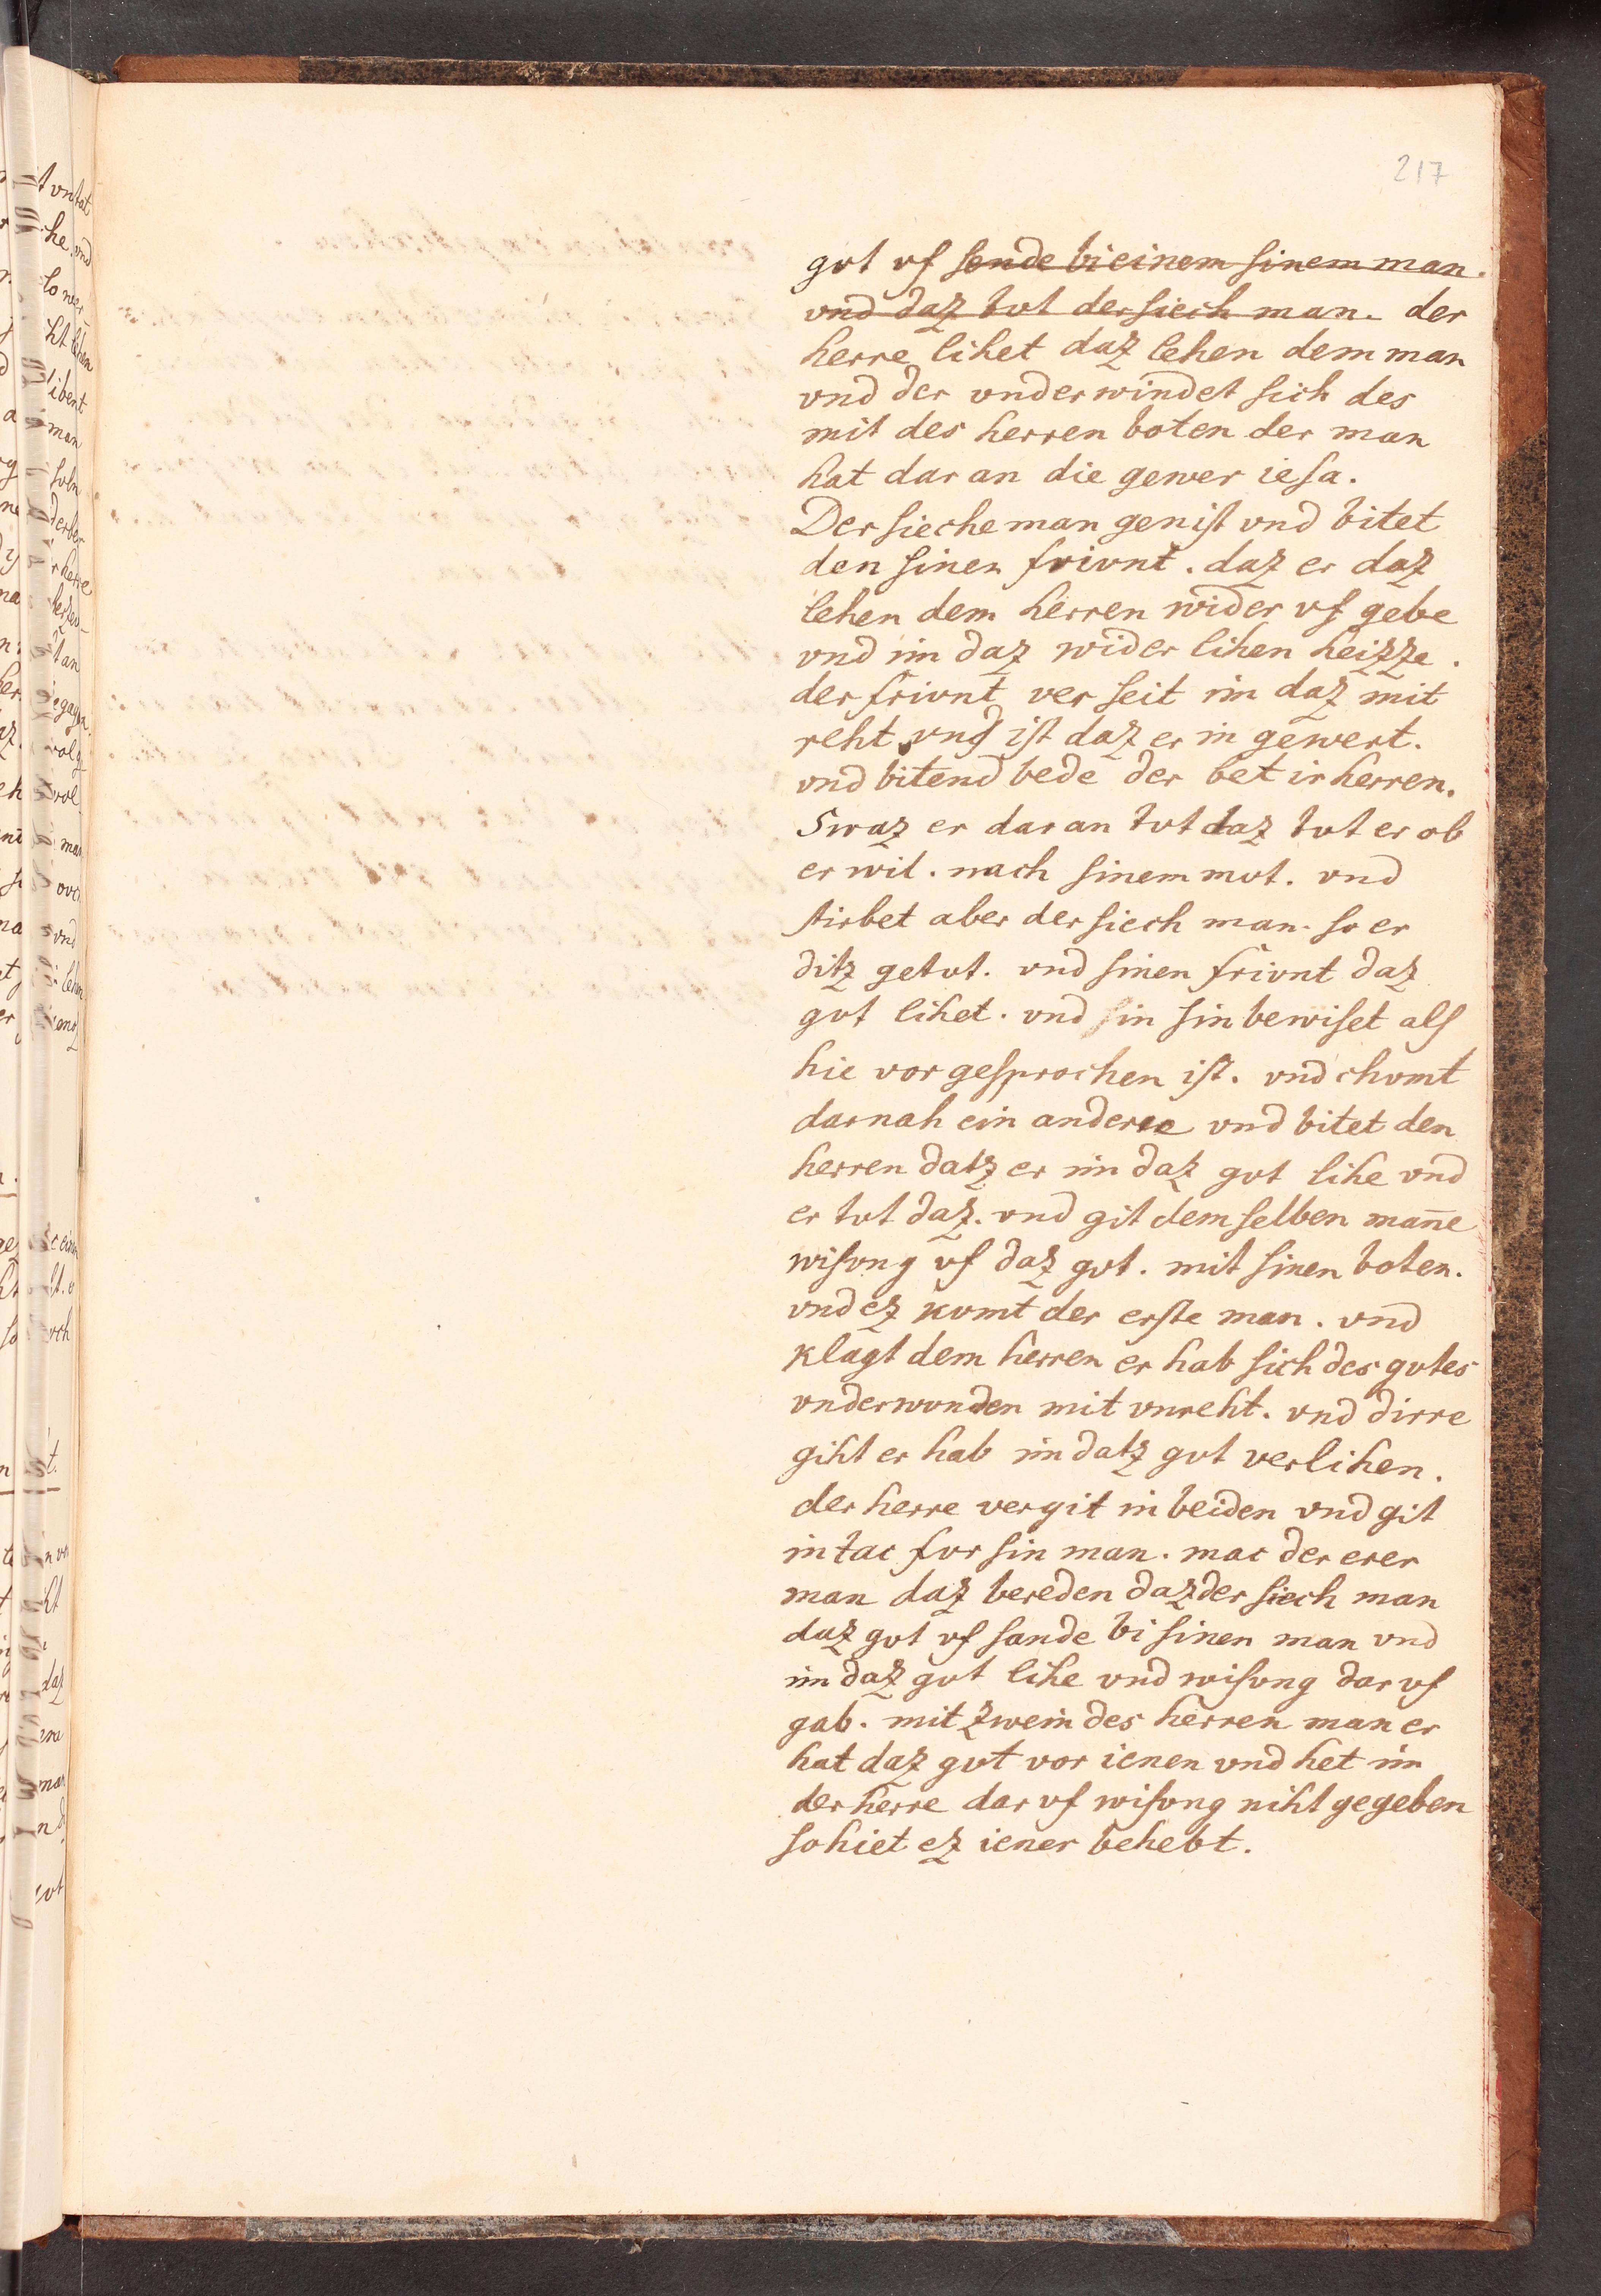 217
gvt vf sende bi einem sinem man.
vnd daz tvt der siech man. der
herre lihet daz lehen dem man
vnd der vnderwindet sich des
mit des herren boten der man
hat dar an die gewer iesa.
Der sieche man genist vnd bitet
den sinen frivnt. daz er daz
lehen dem herren wider vf gebe
vnd im daz wider lihen heizze.
der frivnt ver seit im daz mit
reht vnd ist daz er in gewert.
vnd bitend bede der bet ir herren.
Swaz er dar an tvt daz tvt er ob
er wil. nach sinem mvt. vnd
stirbet aber der siech man. so er
ditz getvt. vnd sinen frivnt daz
gvt lihet. vnd sin sin bewiset als
hie vor gesprochen ist. vnd chvmt
darnah ein anderre vnd bitet den
herren datz er im daz gvt lihe vnd
er tvt daz. vnd git dem selben man̄e
wisvng vf daz gvt. mit sinen boten.
vnd ez kvmt der erste man. vnd
klagt dem herren er hab sich des gvtes
vnderwnden mit vnreht. vnd dirre
giht er hab im datz gvt verlihen.
der herre vergit in beiden vnd git
in tac fvr sin man. mac der erer
man daz bereden daz der siech man
daz gvt vf sande bi sinen man vnd
im daz gvt lihe vnd wisvng dar vf
gab. mit zwein des herren man er
hat daz gvt vor ienen vnd het im
der herre dar vf wisvng niht gegeben
so hiet ez iener behebt.